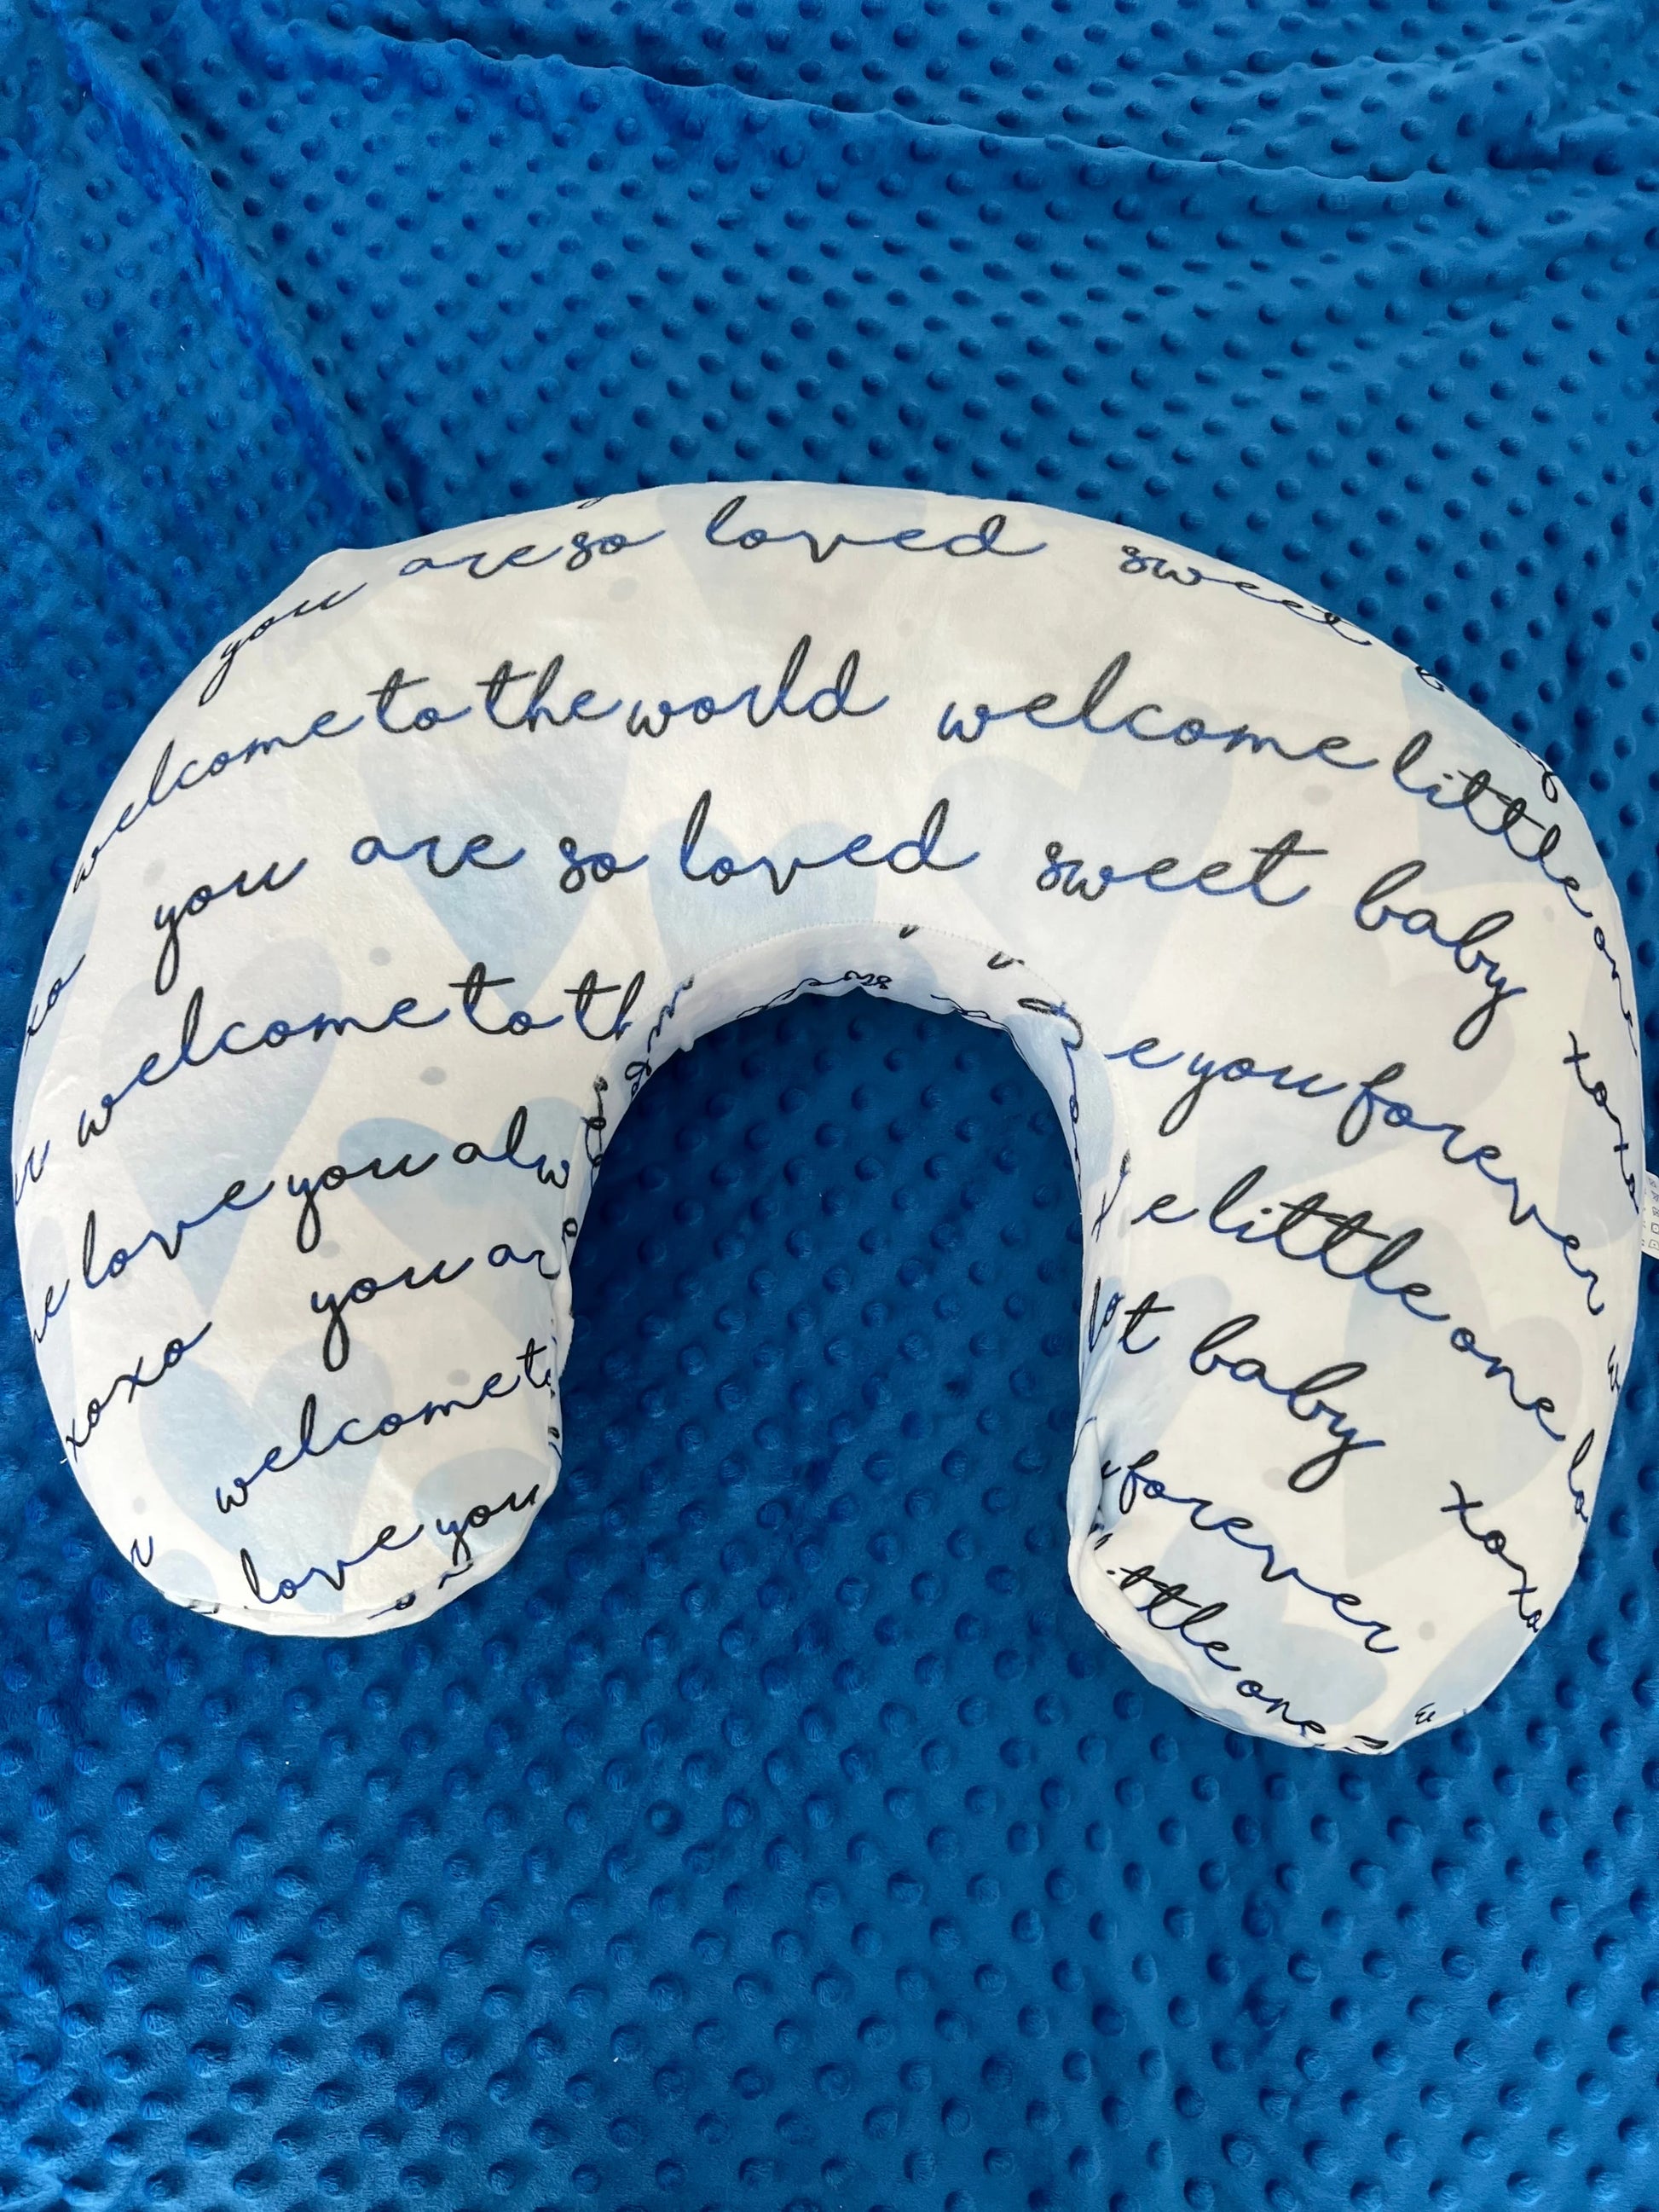 you are so loved sweet
welcome to the world welcome little one
you are so loved sweet baby xoxo
xo
welcome to th
e you forever
love you alw
e little one
xoxo you ar
t baby xoxo
welcome t
forever
love you
ittle one